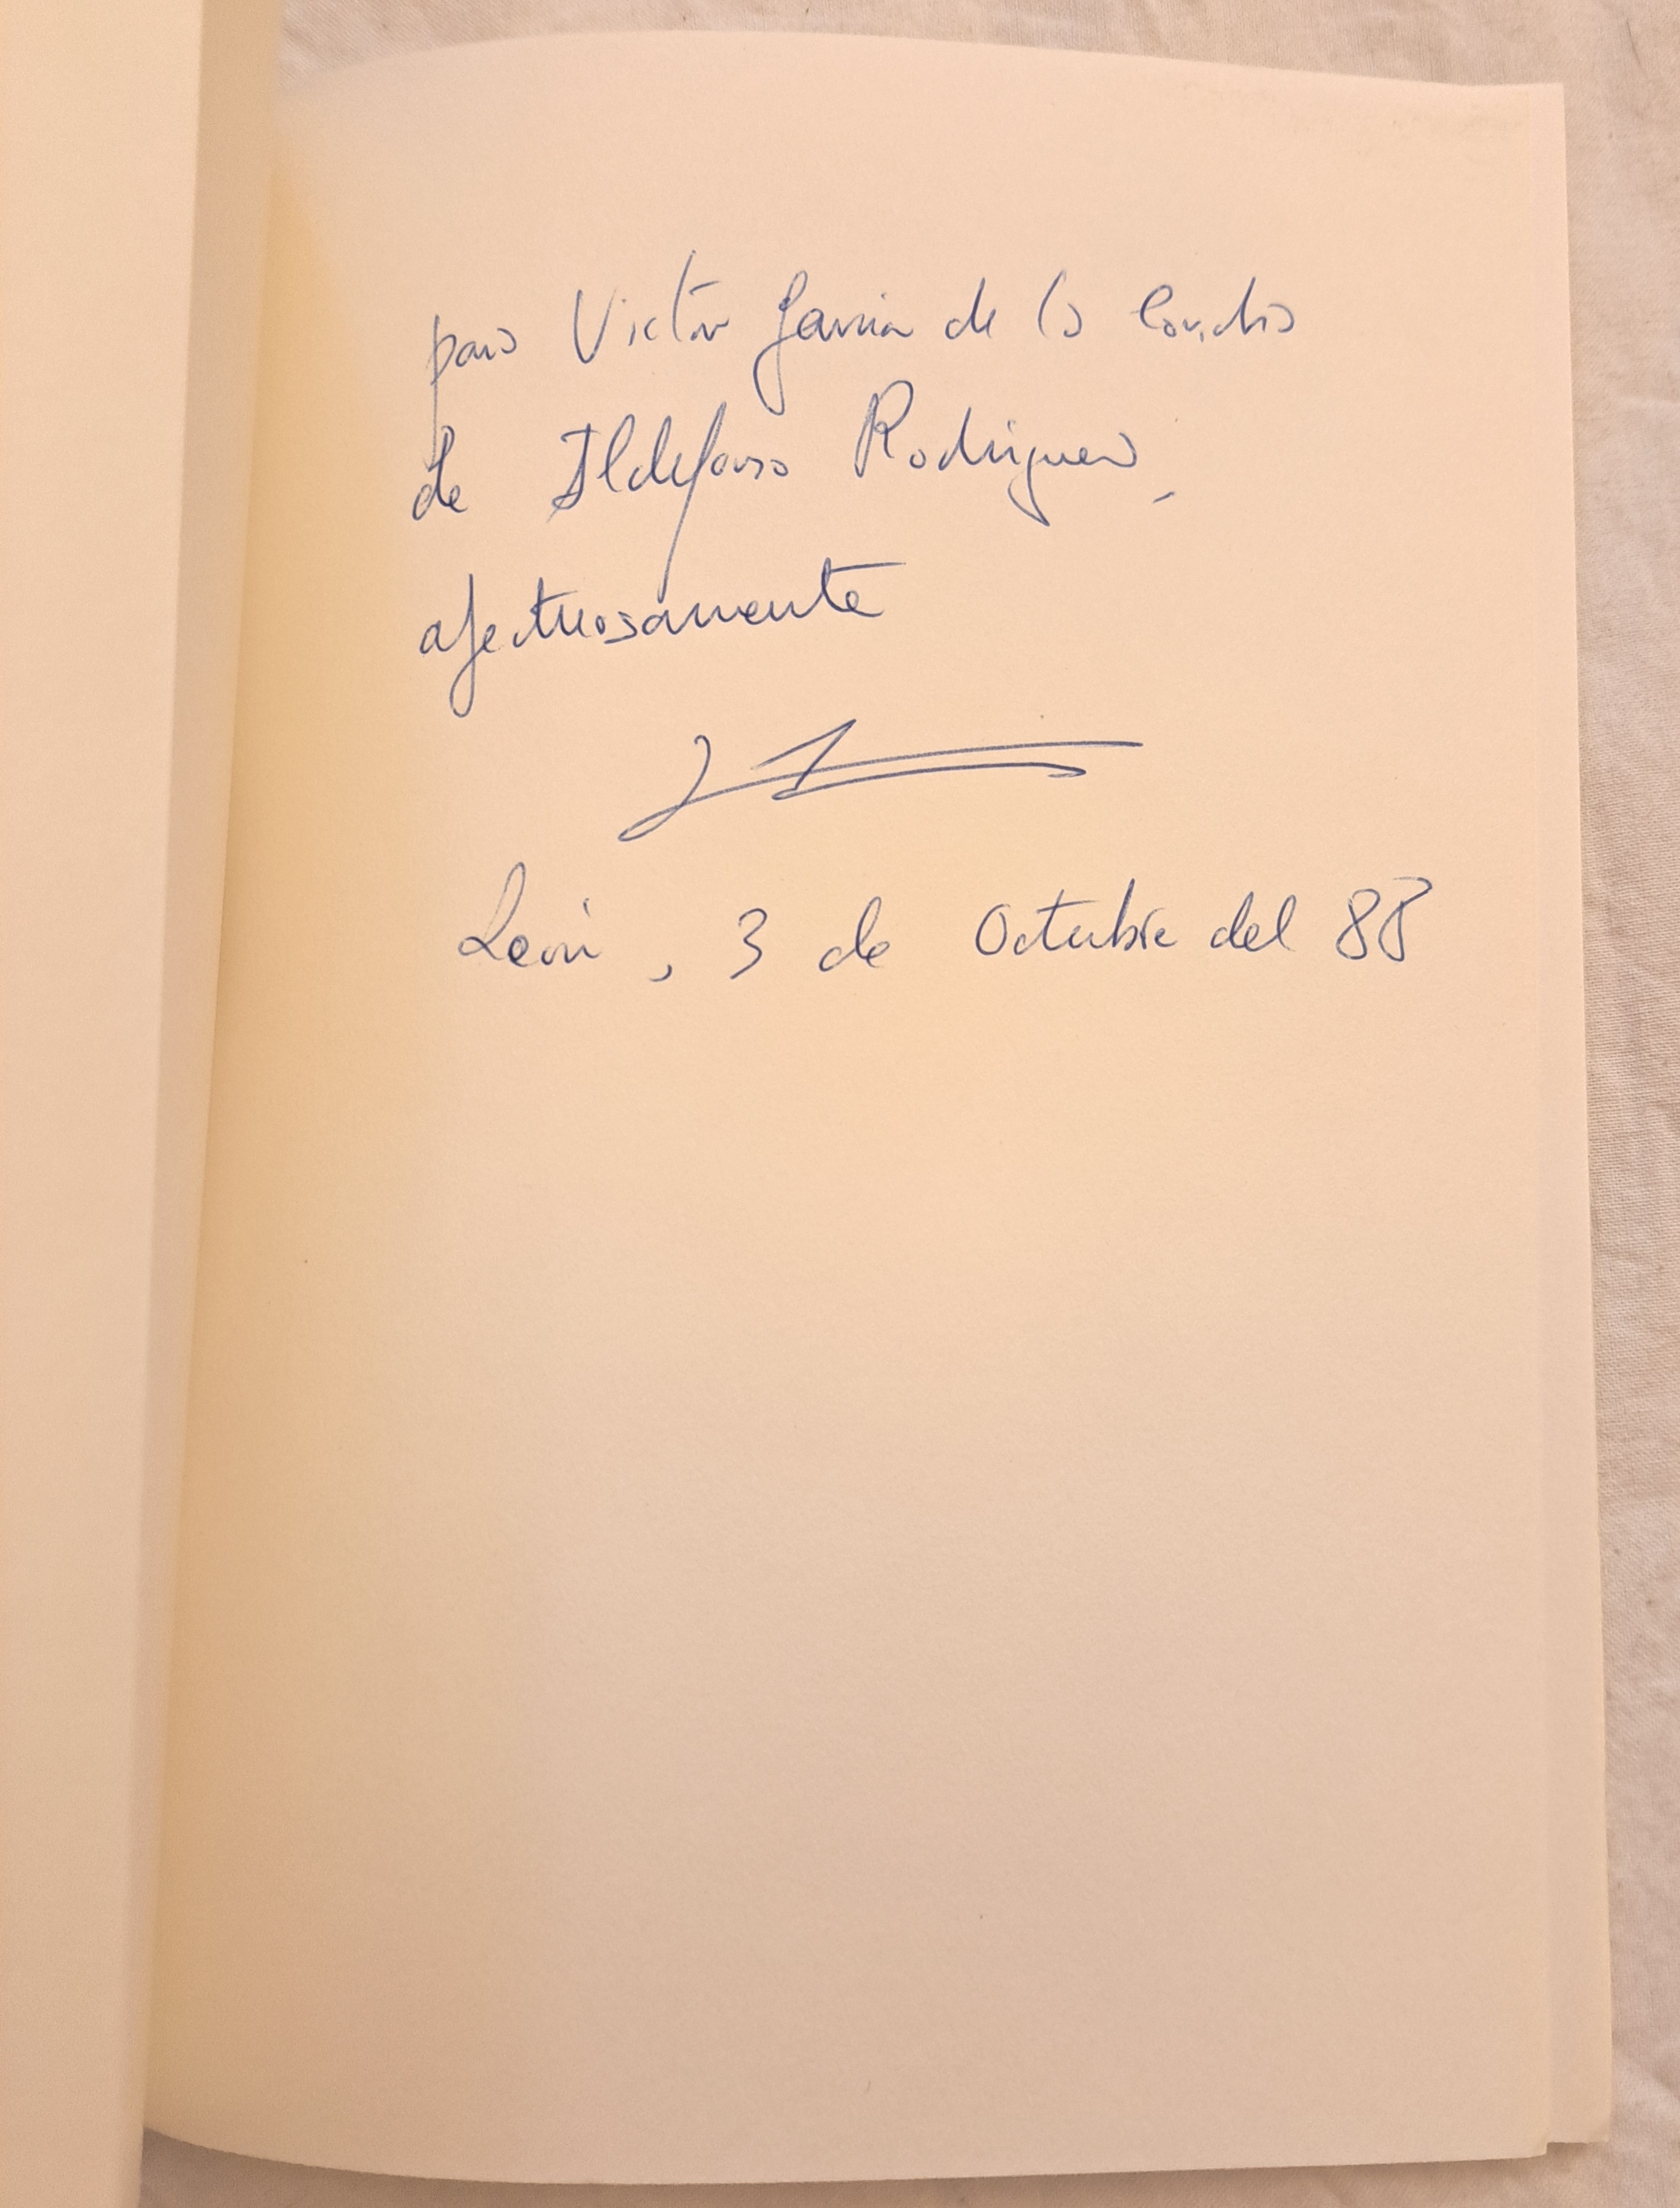 para Victor García de la Concha
de Ildefonso Rodríguez,
afectuosamente
León, 3 de Octubre del 88